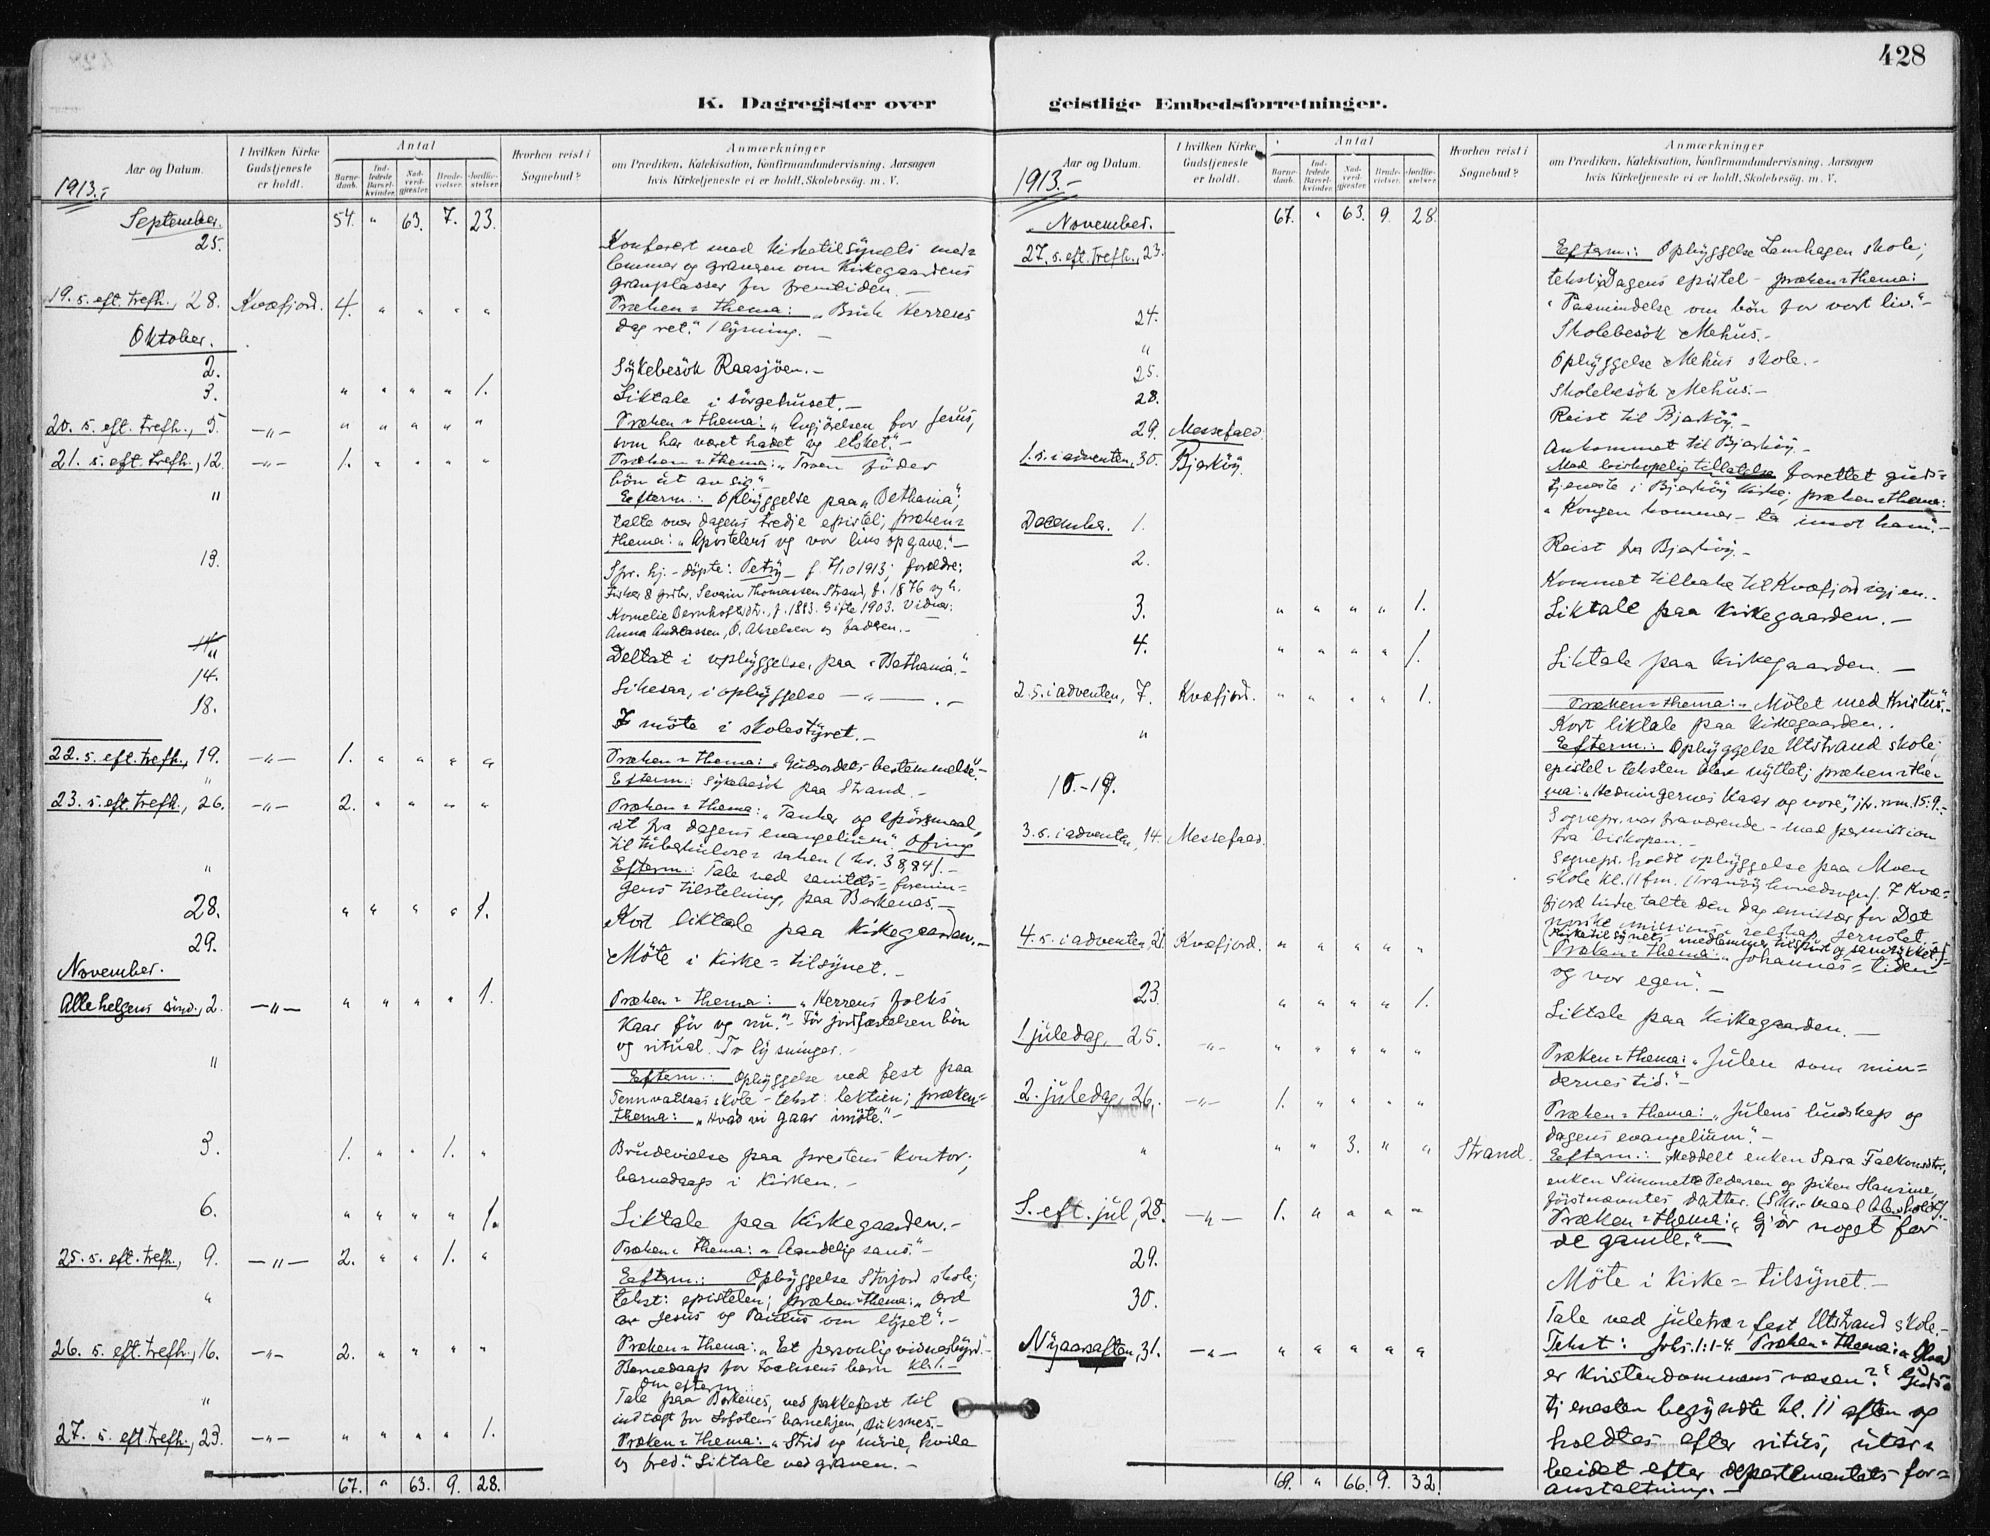 428
K. Dagregister over
geistlige Embedsforretninger.
Aar og Datum.
I hvilken Kirke Gudstjeneste er holdt.
Antal
Barne-daab.
Ind-ledede Barsel-kvinder.
Nad-verd-gjæster.
Brude-vielser.
Jordfæ-stelser.
Hvorhen reist i Sognebud?
Anmærkninger
om Prædiken, Katekisation, Konfirmandundervisning, Aarsagen
hvis Kirketjeneste ei er holdt, Skolebesøg m. V.
1913.-
September. 54. " 63. 7. 23.
25. Konferert med kirketilsynets med-
lemmer og graveren om Kirkegaardens
gravplasser for fremtiden. -
19. s. eft. trefh., 28. Kvæfjord. 4. " " " " Præken = thema: "Bruk Herrens
dag ret." 1 lysning. -
Oktober.
2. Sykebesøk Raasjøen. -
3. " " " " 1. Liktale i sørgehuset. -
20. s. eft. trefh., 5. -"- " " " " " Præken = thema: " Avgjørelsen for Jesus,
som har været hadet og elsket." -
21. s. eft. trefh., 12. -"- 1. " " " " Præken = thema: " Troen føder
bøn ut av sig."
" Efterm.: Opbyggelse paa "Bethania";
talte over dagens tredje epistel; præken =
thema: "Apostelens og vor livsopgave." -
13. Spr. hj. - døpte: Petry f. 7/10 1913; forældre:
Fisker & grdbr. Severin Thomassen Strand, f. 1876 og h.
Kornelie Bernhoftsdtr., f. 1883. Gifte 1903. Vidner:
Anna Andreassen, O. Akselsen og faderen. -
" Deltat i opbyggelse paa "Bethania." -
14. Likesaa, i opbyggelse - " - . -
18. I møte i skolestyret. -
22. s. eft. trefh., 19. -"- 1. " " " " Præken = thema: " Gudsordets bestemmelse." -
" Efterm.: Sykebesøk paa Strand. -
23. s. eft. trefh., 26. -"- 2. " " " " Præken = thema: "Tanker og spørsmaal,
ut fra dagens evangelium." Ofring
til tuberkulose = saken (kr. 38,84). -
" Efterm.: Tale ved sanitets = forenin-
gens tilstelning, paa Borkenes. -
28. " " " " 1. Kort liktale paa kirkegaarden. -
29. Møte i kirke = tilsynet. -
November.
Allehelgens sønd., 2. -"- " " " " 1. Præken = thema: "Herrens folks
kaar før og nu." - Før jordfæstelsen bøn
og ritual. To lysninger. -
" Efterm.: Opbyggelse ved fest paa
Tennvatsaas skole - tekst: lektien; præken =
thema: "Hvad vi gaar imøte." -
3. 1. " " 1. " Brudevielse paa prestens kontor;
barnedaap i kirken. -
6. " " " " 1. Liktale paa Kirkegaarden. -
25. s. eft. trefh., 9. -"- 2. " " 1. " Præken = thema: "Aandelig sans." -
" Efterm.: Opbyggelse Storjord skole;
tekst: epistelen; præken = thema: " Ord
av Jesus og Paulus om lyset." -
26. s. eft. trefh., 16. -"- 2. " " " " Præken = thema: " Et personlig vidnesbyrd." -
Barnedaap for barn kl. 1. -
" Om efterm.
Tale paa Borkenes, ved pakkefest til
indtægt for Lofotens barnehjem, Buksnes. -
27. s. eft. trefh., 23. -"- " " " " 1. Præken = thema: "Strid og møie, hvile
og fred." Liktale ved graven. -
67. " 63. 9. 28.
Aar og Datum.
I hvilken Kirke Gudstjeneste er holdt.
Antal
Barne-daab.
Ind-ledede Barsel-kvinder.
Nad-verd-gjæster.
Brude-vielser.
Jordfæ-stelser.
Hvorhen reist i Sognebud?
Anmærkninger
om Prædiken, Katekisation, Konfirmandundervisning, Aarsagen
hvis Kirketjeneste ei er holdt, Skolebesøg m. V.
1913.-
November. 67. " 63. 9. 28.
27. s. eft. trefh., 23. Efterm.: Opbyggelse Lamhagen skole;
tekst: Dagens epistel - præken = thema:
"Paamindelse om bøn for vort liv." -
24. Skolebesøk Mehus. -
" Opbyggelse Mehus skole. -
25. Skolebesøk Mehus. -
28. Reist til Bjarkøy. -
29. Messefald. Ankommet til Bjarkøy. -
1. s. i adventen, 30. Bjarkøy. Med biskopelig tillatelse forrettet guds =
tjeneste i Bjarkøy kirke; præken = thema:
"Kongen kommer - ta imot ham." -
December. 1. Reist fra Bjarkøy. -
2. Kommet tilbake til Kvæfjord igjen. -
3. " " " " 1. Liktale paa kirkegaarden. -
4. " " " " 1. Liktale paa kirkegaarden. -
2. s. i adventen, 7. Kvæfjord. " " " " 1. Præken = thema: " Møtet med Kristus." -
Kort liktale paa kirkegaarden. -
" Efterm.: Opbyggelse Utstrand skole;
epistel = teksten blev nyttet; præken = the-
ma: "Hedningernes kaar og vore," jfr. rom. 15.9. -
10.-19. Sognepr. var fraværende - med permission
fra biskopen. -
3. s. i adventen, 14. Messefald. Sognepr. holdt opbyggelse paa Moen
skole kl. 11 fm. (Tranøy hovedsogn). I Kvæ-
fjord kirke talte den dag emissær for Det
norske missions = selskap Jernstet. -
(Kirketilsynets medlemmer tilspurt og samtykket.) -
4. s. i adventen, 21. Kvæfjord. " " " " " Præken = thema: " Johannes = tiden
og vor egen." -
23. " " " " 1. Liktale paa Kirkegaarden. -
1. juledag, 25. -"- " " " " " Præken = thema: " Julen som min =
dernes tid." -
2. juledag, 26. -"- 1. " " " " Præken = thema: "Julens budskap og
dagens evangelium." -
" " " 3. " " Strand. Efterm.: Meddelt enken Sara Falkonsdtr.,
enken Simonette Pedersen og piken Hansine,
førstnævntes datter.
S. eft. jul, 28. -"- 1. " " " " Præken = thema: " Gjør noget for
de gamle." -
29. Møte i Kirke = tilsynet. -
30. Tale ved juletræ = fest Utstrand skole. -
Nyaarsaften, 31. -"- " " " " " Tekst: Johs. 1:1-4. Præken = thema: " Hvad
er kristendommens væsen?" Guds =
tjenesten begyndte kl. 11 aften og
holdtes efter ritus, utar =
beidet efter departementets for =
anstaltning. -
69. " 66. 9. 32.